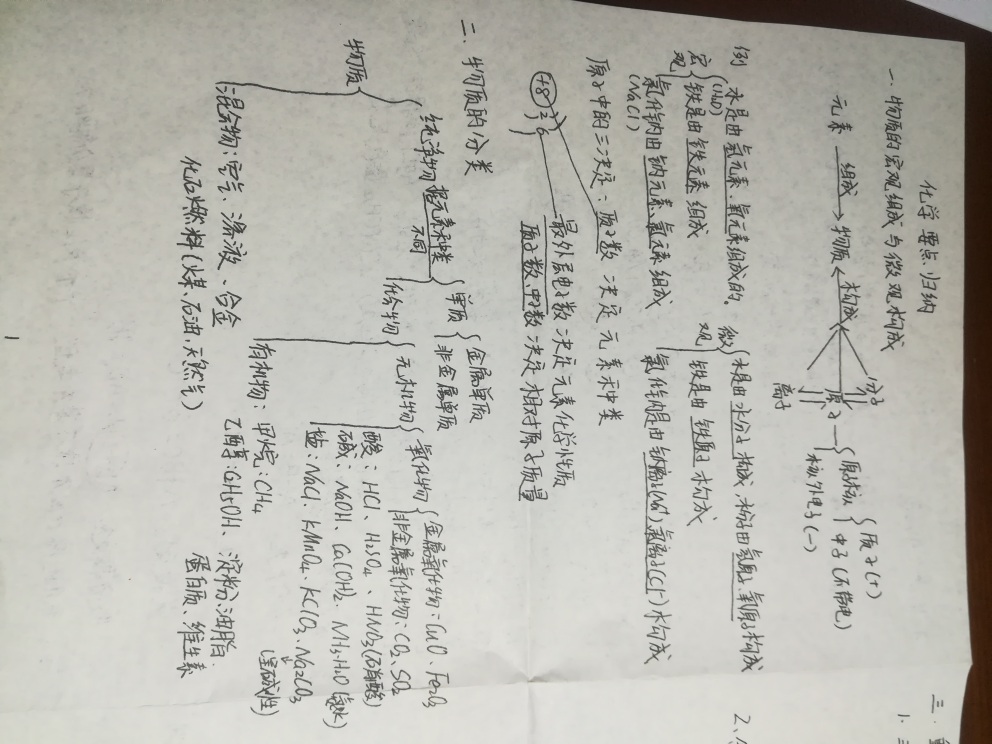 化学要点归纳
一、物质的宏观组成与微观构成
元素 组成 物质 构成 分子
原子 原子核 质子(+)
中子(不带电)
核外电子(-)
离子
例 宏观 水是由氢元素、氧元素组成的。
(H₂O)
铁是由铁元素组成
氯化钠由钠元素、氯元素组成
(NaCl)
微观 水是由水分子构成，水分子由氢原子、氧原子构成
铁是由铁原子构成
氯化钠是由钠离子(Na⁺)氯离子(Cl⁻)构成
原子中的三决定：质子数决定元素种类
+8 2 6 最外层电子数决定元素化学性质
质子数、中子数决定相对原子质量
二、物质的分类
物质 纯净物 据元素种类不同
单质 金属单质
非金属单质
化合物 无机物 氧化物 金属氧化物：CuO、Fe₂O₃
非金属氧化物：CO₂、SO₂
酸：HCl、H₂SO₄、HNO₃(硝酸)
碱：NaOH、Ca(OH)₂、NH₃·H₂O(氨水)
盐：NaCl、KMnO₄、KClO₃、Na₂CO₃
(呈碱性)
有机物：甲烷：CH₄
乙醇：C₂H₅OH、淀粉、油脂、
蛋白质、维生素
混合物：空气、溶液、合金
化石燃料(煤、石油、天然气)
1
三、
1.
2、